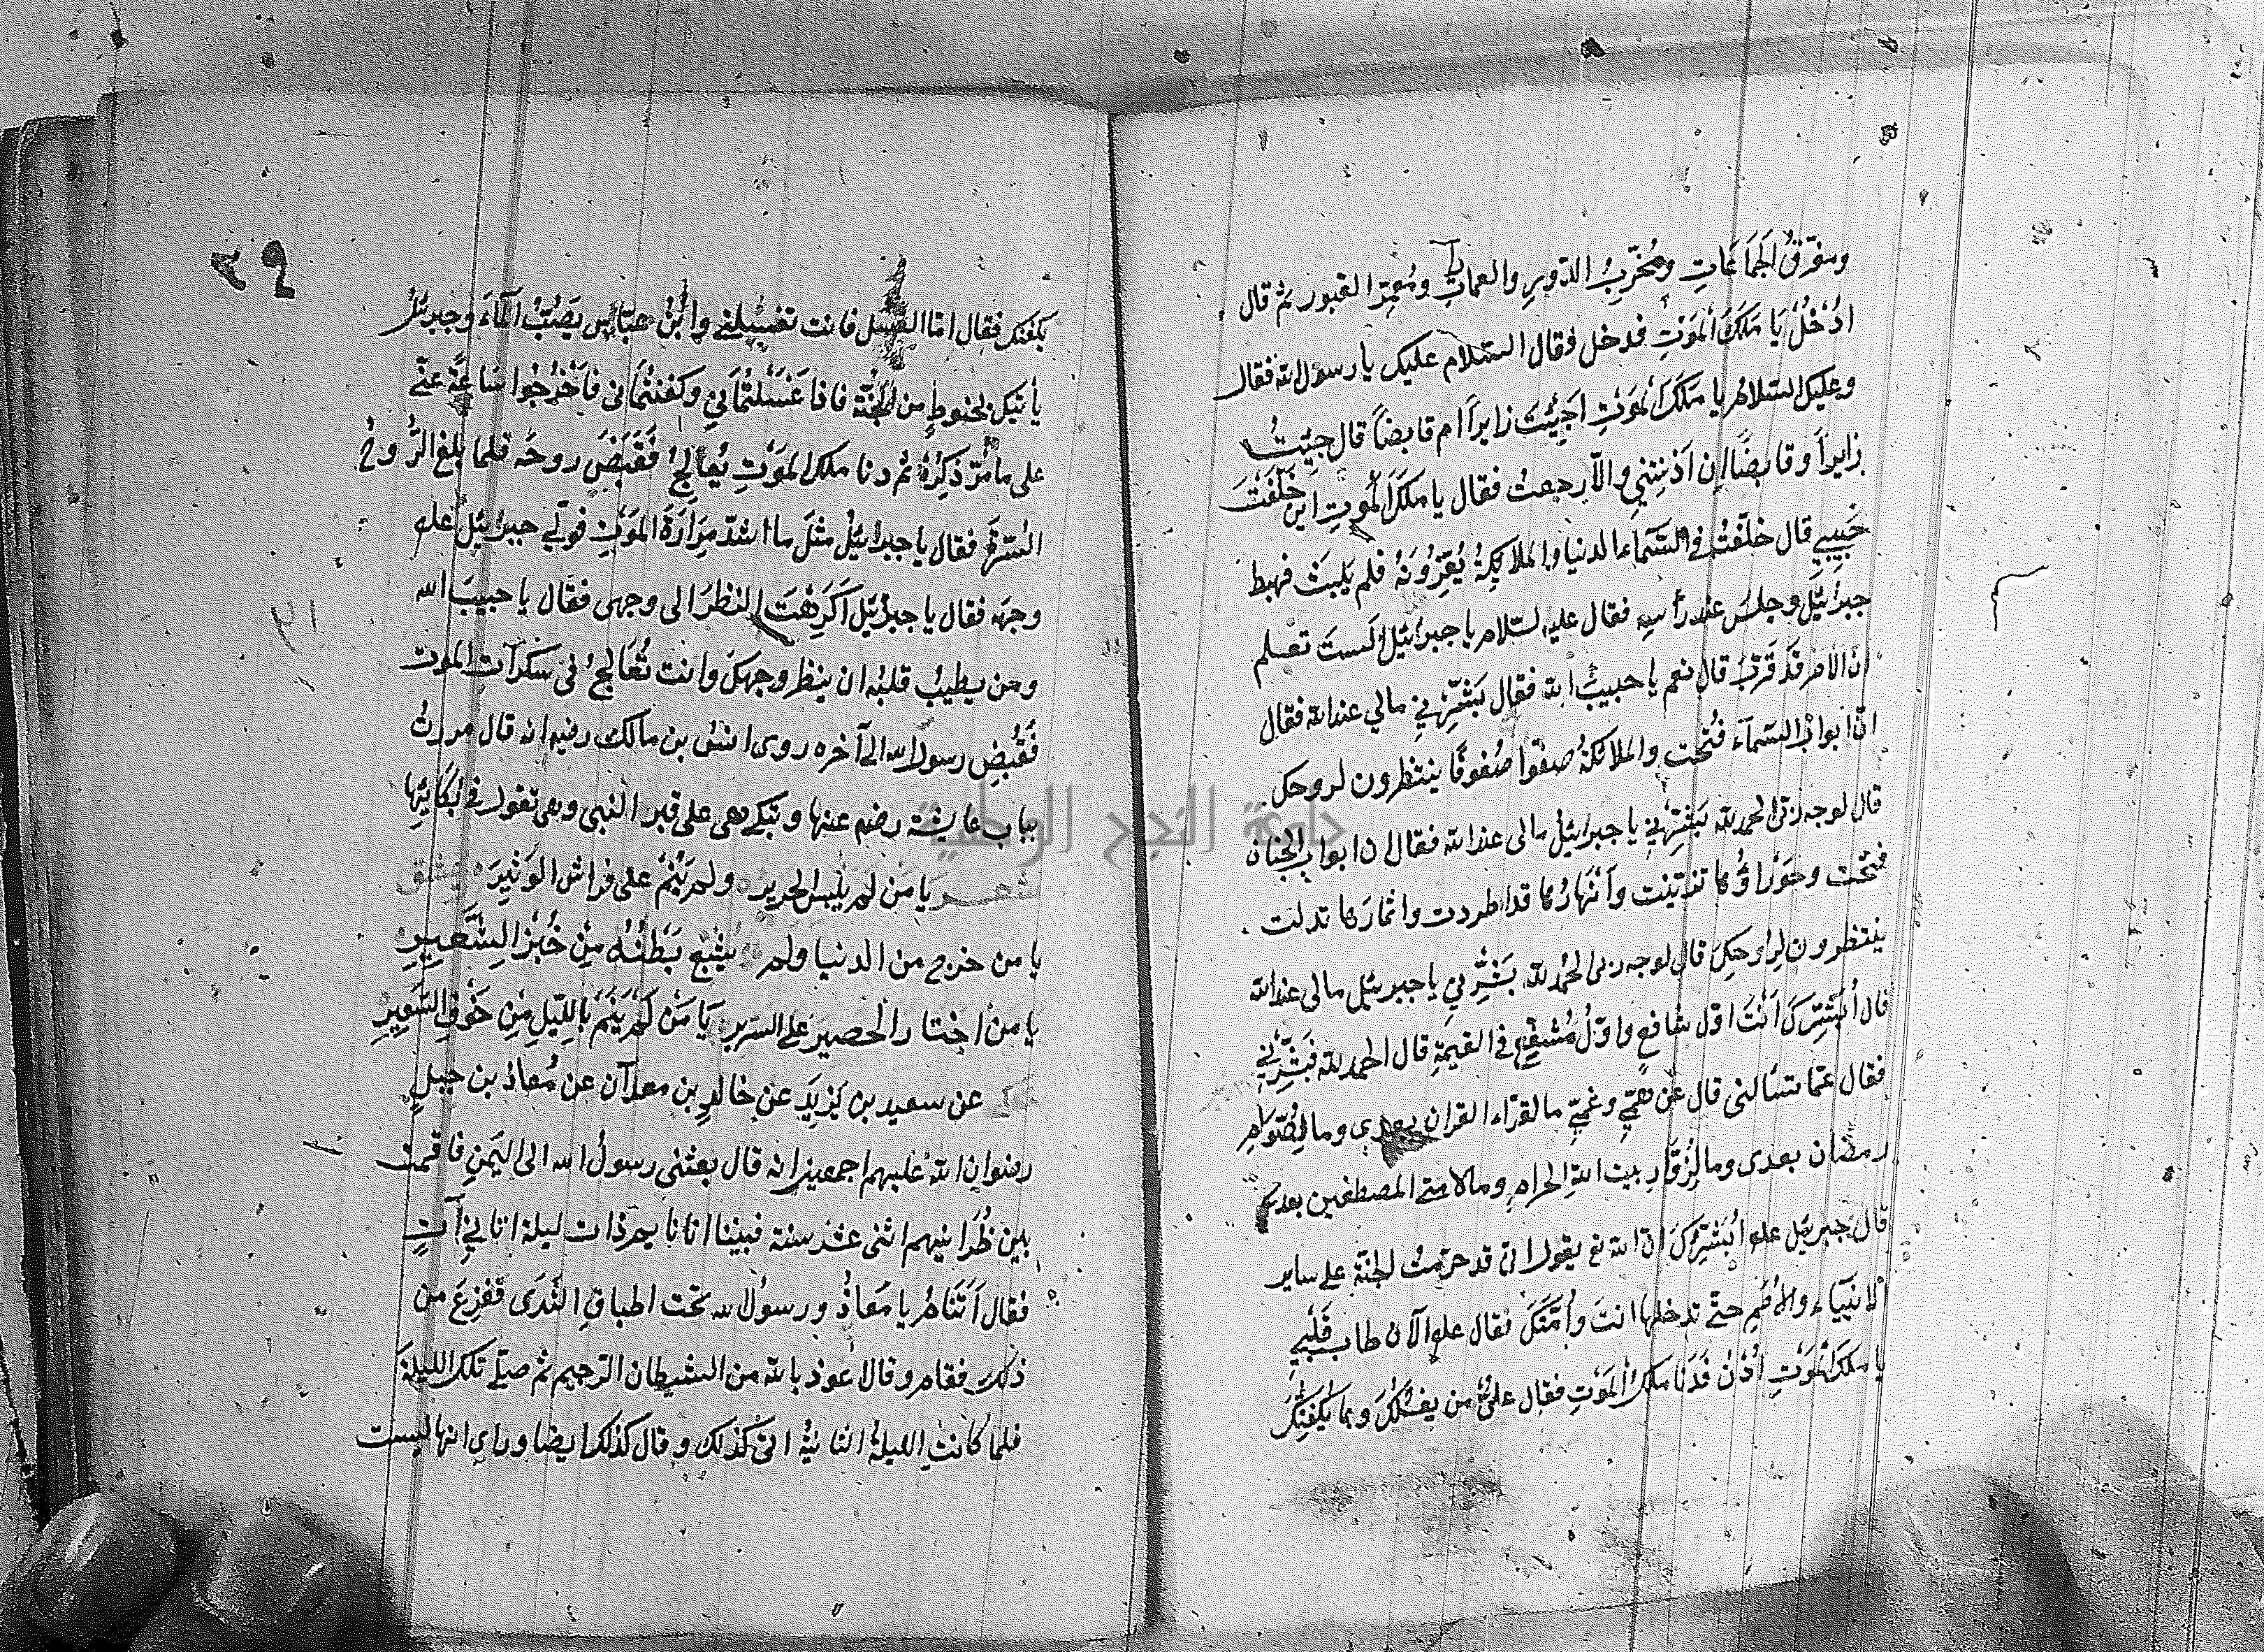 ومفرّقُ الجَمَاعَاتِ ومُخَرِّبُ الدّورِ والعماراتِ ومُعمِّرُ القبور ثم قال
ادْخُلْ يَا مَلَكَ المَوتِ فدخل فقال السّلام عليك يا رسول الله فقال
وعليك السّلام يا مَلَكَ المَوتِ اَجِئْتَ زايراً ام قابضاً قال جِئتُ
زايراً وقابضًا ان اَذِنْتَنِي والّا رجعتُ فقال يا ملكَ الموتِ اين خَلَّفْتَ
حَبِيبِي قال خلّفتُ في السَّمَاءِ الدنيا والملائكةُ يُعَزُّونَهُ فلم يلبث فهبط
جبرائيل وجلسَ عند رأسه فقال عليه السّلام يا جبرائيل اَلَستَ تعلم
انّ الامرَ قَد قَرُبَ قال نعم يا حبيبَ الله فقال بَشِّرْنِي مالي عند الله فقال
انّ ابوابَ السّمآء فُتحت والملائكةُ صفّوا صُفوفًا ينتظرون لروحك
قال لوجه ربّى الحمد لله بَشِّرْنِي يا جبرائيل مالى عند الله فقال ان ابواب الجنان
فتحت وحَوْرَاؤُها تزيّنت وأنهارُها قد اطردت واثمارها تدلت
ينتظرون لِرُوحِكَ قال لوجه ربى الحمد لله بَشِّرْنِي يا جبريل مالى عند الله
قال أُبَشِّرُكَ أَنْتَ اوّل شافعٍ واوّلُ مُشفَّعٍ في القيمَةِ قال الحمد لله بَشِّرْنِي
فقال عمّا تسألنى قال عَن هَمِّي وغَمِّي ما لقرّاء القران بعدى وما لِصُوَّام
رمضان بعدى وما لِزُوَّارِ بيت اللهِ الحرامِ وما لامتى المصطفين بعدى
قال جبريل عليه اُبَشِّرُكَ انّ الله تع يقول انّى قد حرّمتُ الجنّة على ساير
الانبياء والأمَمِ حتّى تدخلها انتَ وأُمَّتُكَ فقال عليه الآن طاب قَلْبِي
يا ملكَ المَوْتِ اُدْنُ فَدَنَا ملكُ المَوتِ فقال علىٌّ من يغسّلُكَ وبما نُكَفِّنُكَ
٢٩
يكفنك فقال امّا الغسل فانت تغسّلنى وابْنُ عبّاس يَصُبُّ المآءَ وجبرئيل
يأتيك بحنوطٍ من الجنّة فاذا غَسَلْتُمَانِي وكفنتُمَانى فاَخْرجُوا سَاعَةً عنّى
على ما مَرّ ذِكْرُهُ ثم دنا ملك الموتِ يُعالجُ فَقَبَضَ روحَه فلما بلغ الرُّوحُ
السّرّة فقال يا جبرائيل مثلَ ما اشدّ مَرارَةَ المَوتِ فولّى جبرائيل عليه
وجهَه فقال يا جبرئيل اَكَرِهْتَ النظرَ الى وجهى فقال يا حبيبَ الله
ومن يطيبُ قلبُه ان ينظر وجهكَ وانت تُعَالجُ فى سكراتِ الموت
فَقُبِضَ رسول الله الى آخره روى انسُ بن مالك رضه انه قال مررتُ
بباب عايشة رضى عنها وتبكى هى على قبر النبى وهى تقول في بُكَائِهَا
شعر يَا مَن لم يلبس الحرير ولم يَنَمْ على فِراش الوَثِيرَ
يا من خرج من الدنيا ولم يَشْبَعْ بَطْنُهُ مِنْ خُبْزِ الشَّعِيرِ
يا من اختار الحصيرَ على السّرير يَا مَن لَم يَنَم بالليل مِن خَوفِ السَّعِيرِ
عن سعيد بن يَزِيدَ عَن خالدِ بن معدآن عن مُعاذ بن جبلٍ
رضوان الله عليهم اجمعين انه قال بعثنى رسولُ الله الى اليَمنِ فاقمتُ
بين ظَهْرَانيهم اثنى عشر سنة فبينا انا نايم ذات ليلة اتانِي آتٍ
فقال اَتَنَامُ يا مَعاذُ ورسولُ لله تحت اطباقِ الثَّرَى فَفَزِعَ من
ذلك فقام وقال اعوذ بالله من الشيطان الرّجيم ثم صلّى تلك الليلة
فلما كانت الليلةُ الثانيةُ اتى كذلك وقال كذلك ايضا وراى انها ليست